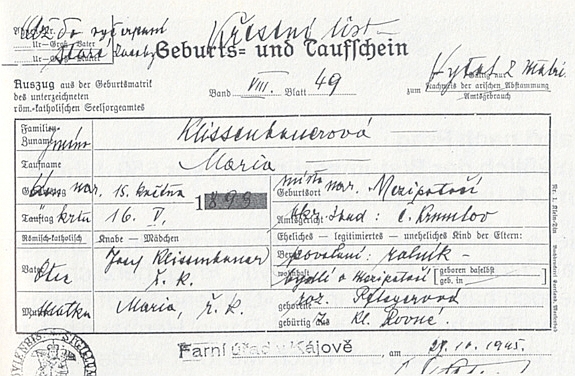 Až do vyčerpání
Křestní list
Ur-Groß-Vater
Ur-Groß-Mutter
staré zásoby
Geburts- und Taufschein
Výtah z Matri.
Nachweis der arischen Abstammung
Amtsgebrauch
zum
Auszug aus der Geburtsmatrik
des unterzeichneten
röm.-katholischen Seelsorgeamtes
Band VIII. Blatt 49
Familien-
Zuname jméno Klissenbauerová
Taufname Maria
nar. 15. května 1899
místo nar. Mezipotočí
Geburtsort
Tauftag křtu 16. V.
okr. soud: Č. Krumlov
Römisch-katholisch Knabe - Mädchen
Eheliches - legitimiertes - uneheliches Kind der Eltern:
Vater Otec Josef Klissenbauer
ř. k.
povolání: rolník
wohnhaft bydlí v Mezipotočí
geboren daselbst
geb. in
Mutter Matka Maria, ř. k.
geborene roz. Pflegerová
gebürtig Z Kl. Rovné.
Farní úřad v Kájově, am 27. 10. 1945.